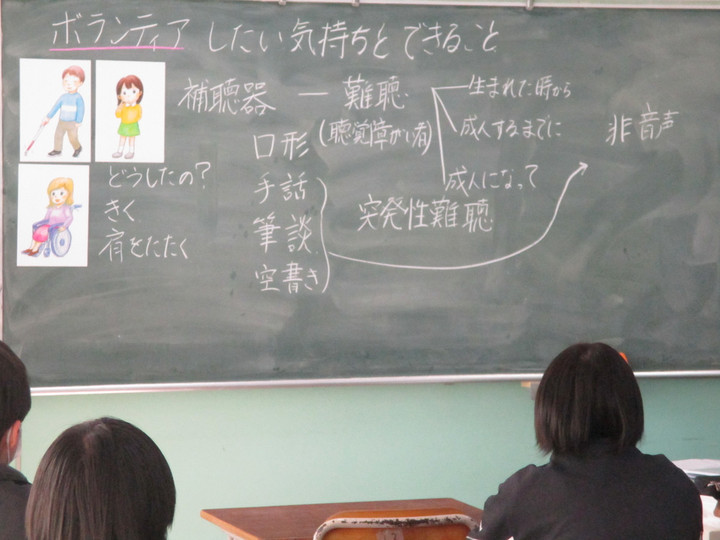 ボランティア したい気持ちとできること
補聴器 ― 難聴
(聴覚障がい者)
生まれた時から
成人するまでに
成人になって
突発性難聴
口形
手話
筆談
空書き
非音声
どうしたの?
きく
肩をたたく